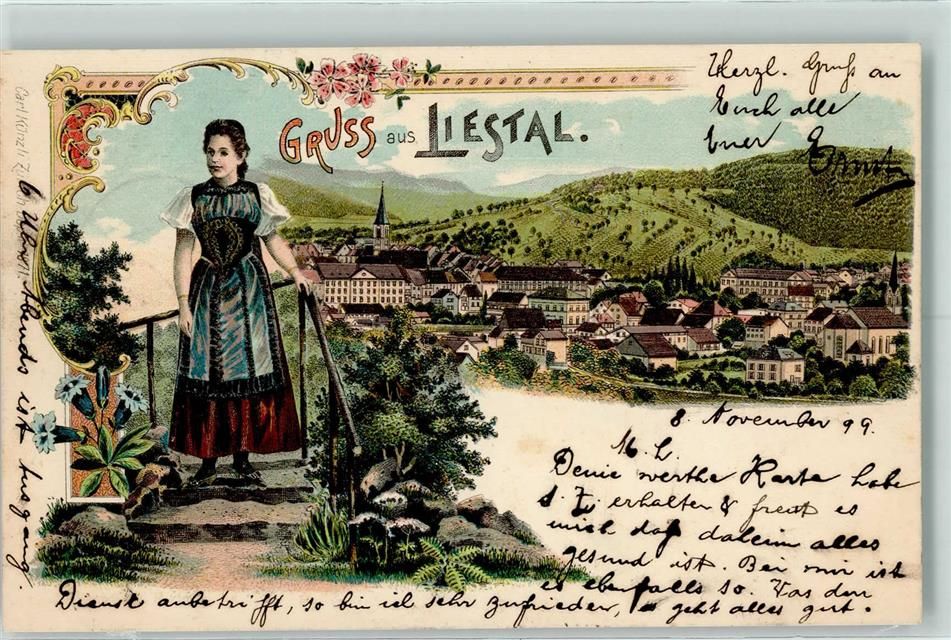 GRUSS aus LIESTAL.
Herzl. Gruß an
Euch alle
Euer
Ernst
8. November 99.
M. L.
Deine werthe Karte habe
s. Z. erhalten & freut es
mich daß daheim alles
gesund ist. Bei mir ist
es ebenfalls so. Was den
Dienst anbetrifft, so bin ich sehr zufrieden, geht alles gut.
6 Uhr Abends ist
Carl Künzli